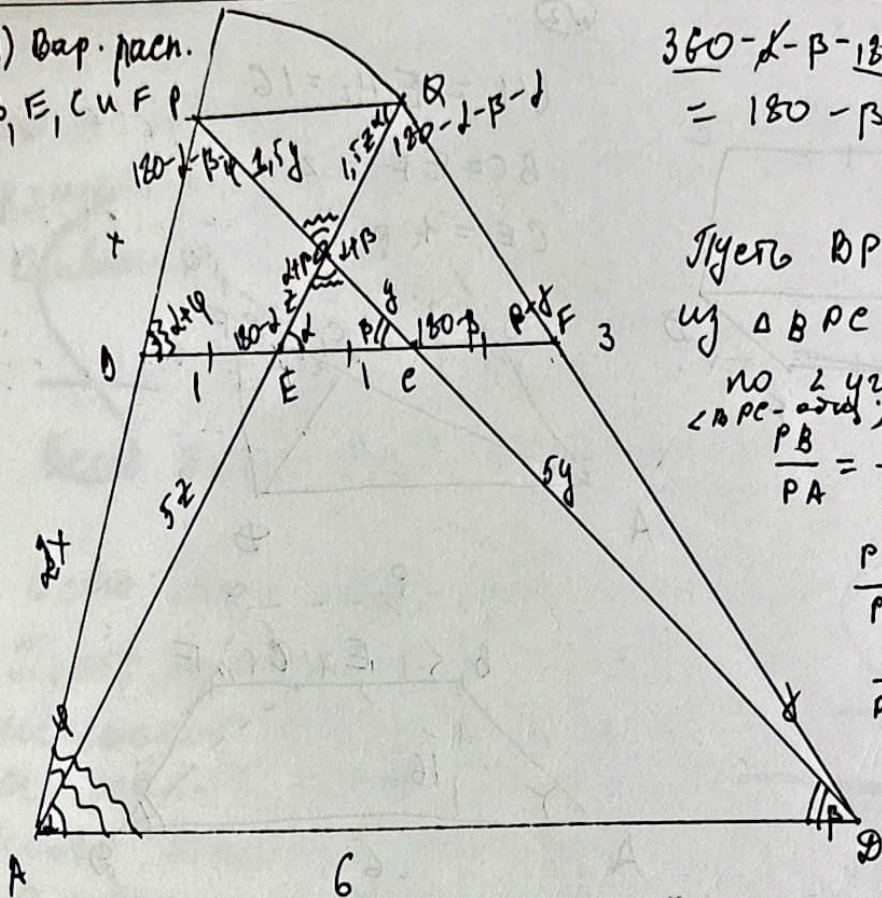 ) Вар. расп.
, E, C и F P
Q
180-α-β-φ 1,5y 1,5z
180-α-β-γ
x
α+β α+β
z y
α+φ 180-α α β 180-β β+γ F 3
1 E 1 C
5z 5y
2x
α β
A 6 D
360-α-β-18
= 180-β
Пусть BP
из Δ BPC
по 2 уг
<BPC-общ;
PB
PA
=
P